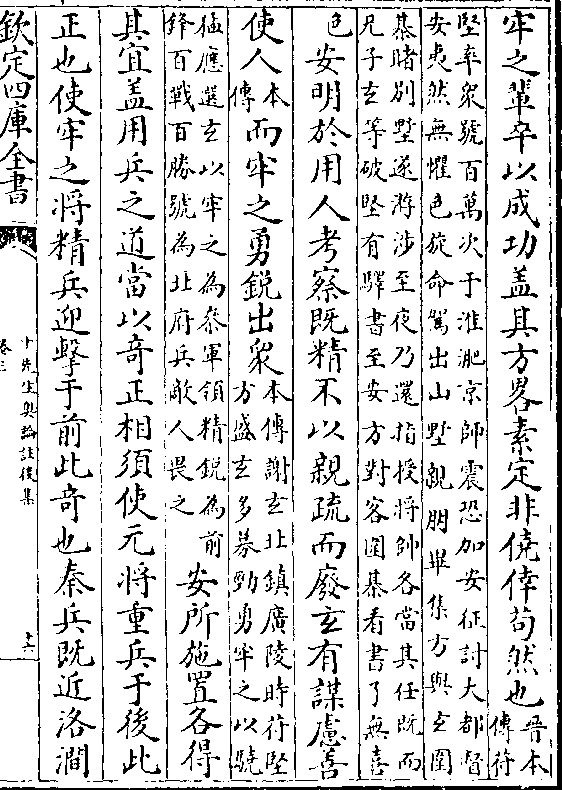 牢之輩卒以成功盖其方畧素定非僥倖苟然也晉本傳苻
堅率衆號百萬次于淮淝京師震恐加安征討大都督
安夷然無懼色旋命駕出山墅親朋畢集方與玄圍
棊賭别墅遂游涉至夜乃還指授將帥各當其任既而
兄子玄等破堅有驛書至安方對客圍棊看書了無喜
色安明於用人考察既精不以親疏而廢玄有謀慮善
使人本傳而牢之勇鋭出衆本傳謝玄北鎮廣陵時苻堅方盛玄多募勁勇牢之以驍
猛應選玄以牢之為叅軍領精鋭為前鋒百戰百勝號為北府兵敵人畏之安所施置各得
其宜盖用兵之道當以奇正相須使元將重兵于後此
正也使牢之將精兵迎擊于前此奇也秦兵既近洛澗
欽定四庫全書
十先生奥論註後集
卷三
十六